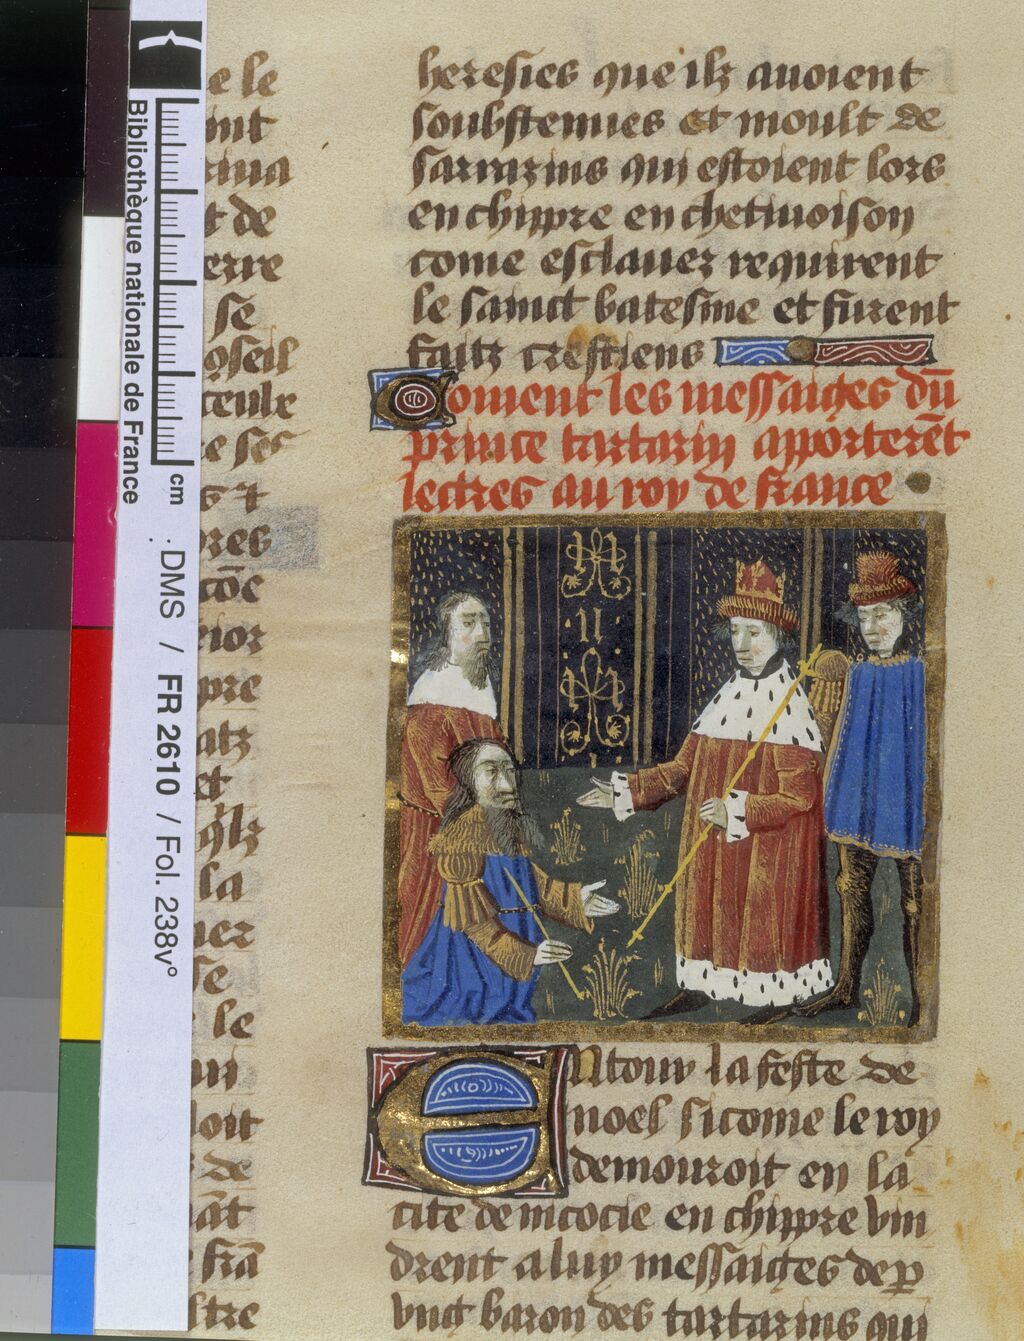 Bibliothèque nationale de France
cm
DMS / FR 2610 / Fol. 238v°
e le
de
erre
se
oseil
pres
pre
atz
et
la
se
le
loit
de
frā
heresies que ilz auoient
soubstenues et moult de
sarrazins qui estoient lors
en chippre en chetiuoison
come esclauez requirent
le sainct batesme et furent
faitz crestiens
Coment les messaiges du
prince tartarin apporterēt
lectres au roy de france
Entour la feste de
noel si come le roy
demouroit en la
cite de nicocie en chippre vin
drent a luy messaiges de p
vng baron des tartarins qui